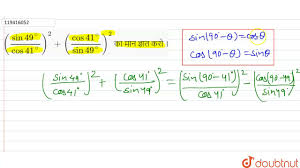 119416052
(sin 49°/cos 41°)² + (cos 41°/sin 49°)² का मान ज्ञात करो।
sin(90-θ)=cosθ
cos(90°-θ)=sinθ
(sin 49°/cos 41°)² + (cos 41°/sin 49°)² = (sin(90-41°)/cos 41°)² - (cos(90-49)/sin 49°)²
doubtnut